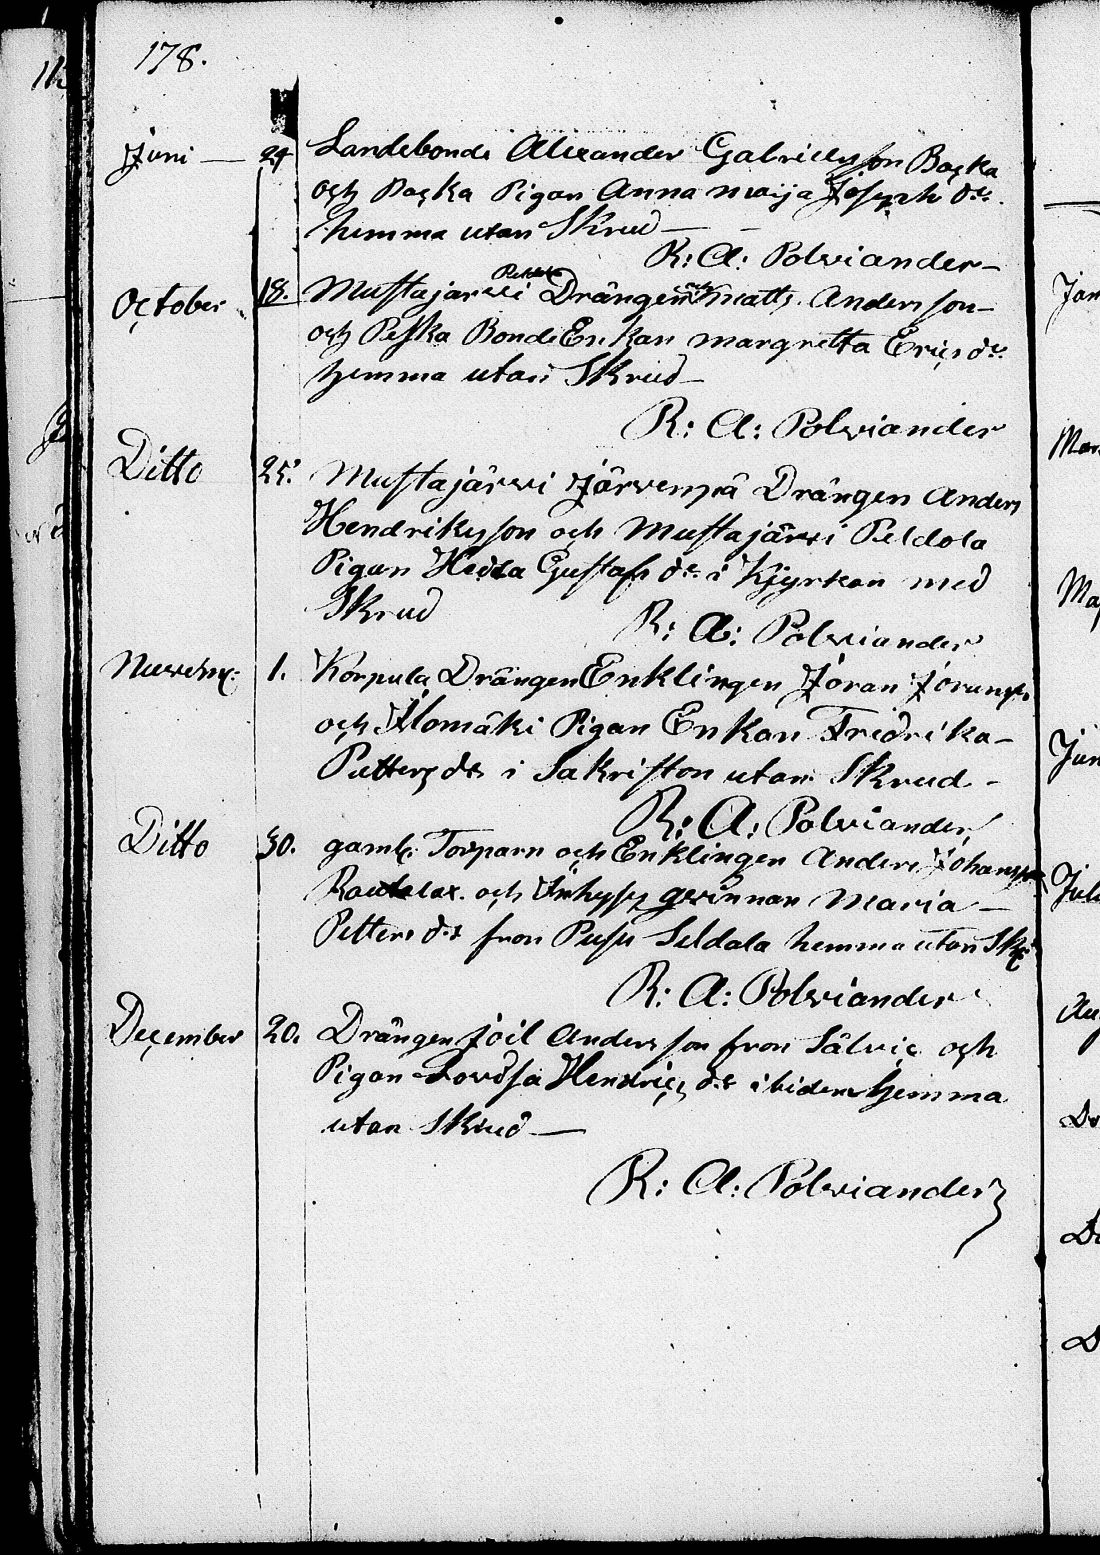 178.
Juni — 24 Landebonde Alexander Gabrielsson Backa
och Backa Pigan Anna maija Joseph dr.
hemma utan Skrud —
R: A: Polviander —
October 18. Mustajärvi Drängen Matts Andersson
och Peska Bonde Enkan margretta Erics dr.
hemma utan Skrud —
R: A: Polviander
Ditto 25. Mustajärvi Järvenpä Drängen Anders
Hendriksson och Mustajärvi Peldola
Pigan Hedda Gustafs dr. i Kyrkan med
Skrud R: A: Polviander
1. Korpula Drängen Enklingen Jöran
och Ilomäki Pigan Enkan Fridrika —
Petters dr i Sakriston utan Skrud —
R: A: Polviander
Ditto 30. gaml. Torparn och Enklingen Anders
och Inhyss qvinnan Maria —
Petters dr fron Pusu Seldala hemma utan
R: A: Polviander
December 20. Drängen Joil Andersson fron och
Pigan Lovdsa Hendrics dr ibidem hemma
utan Skrud —
R: A: Polviander